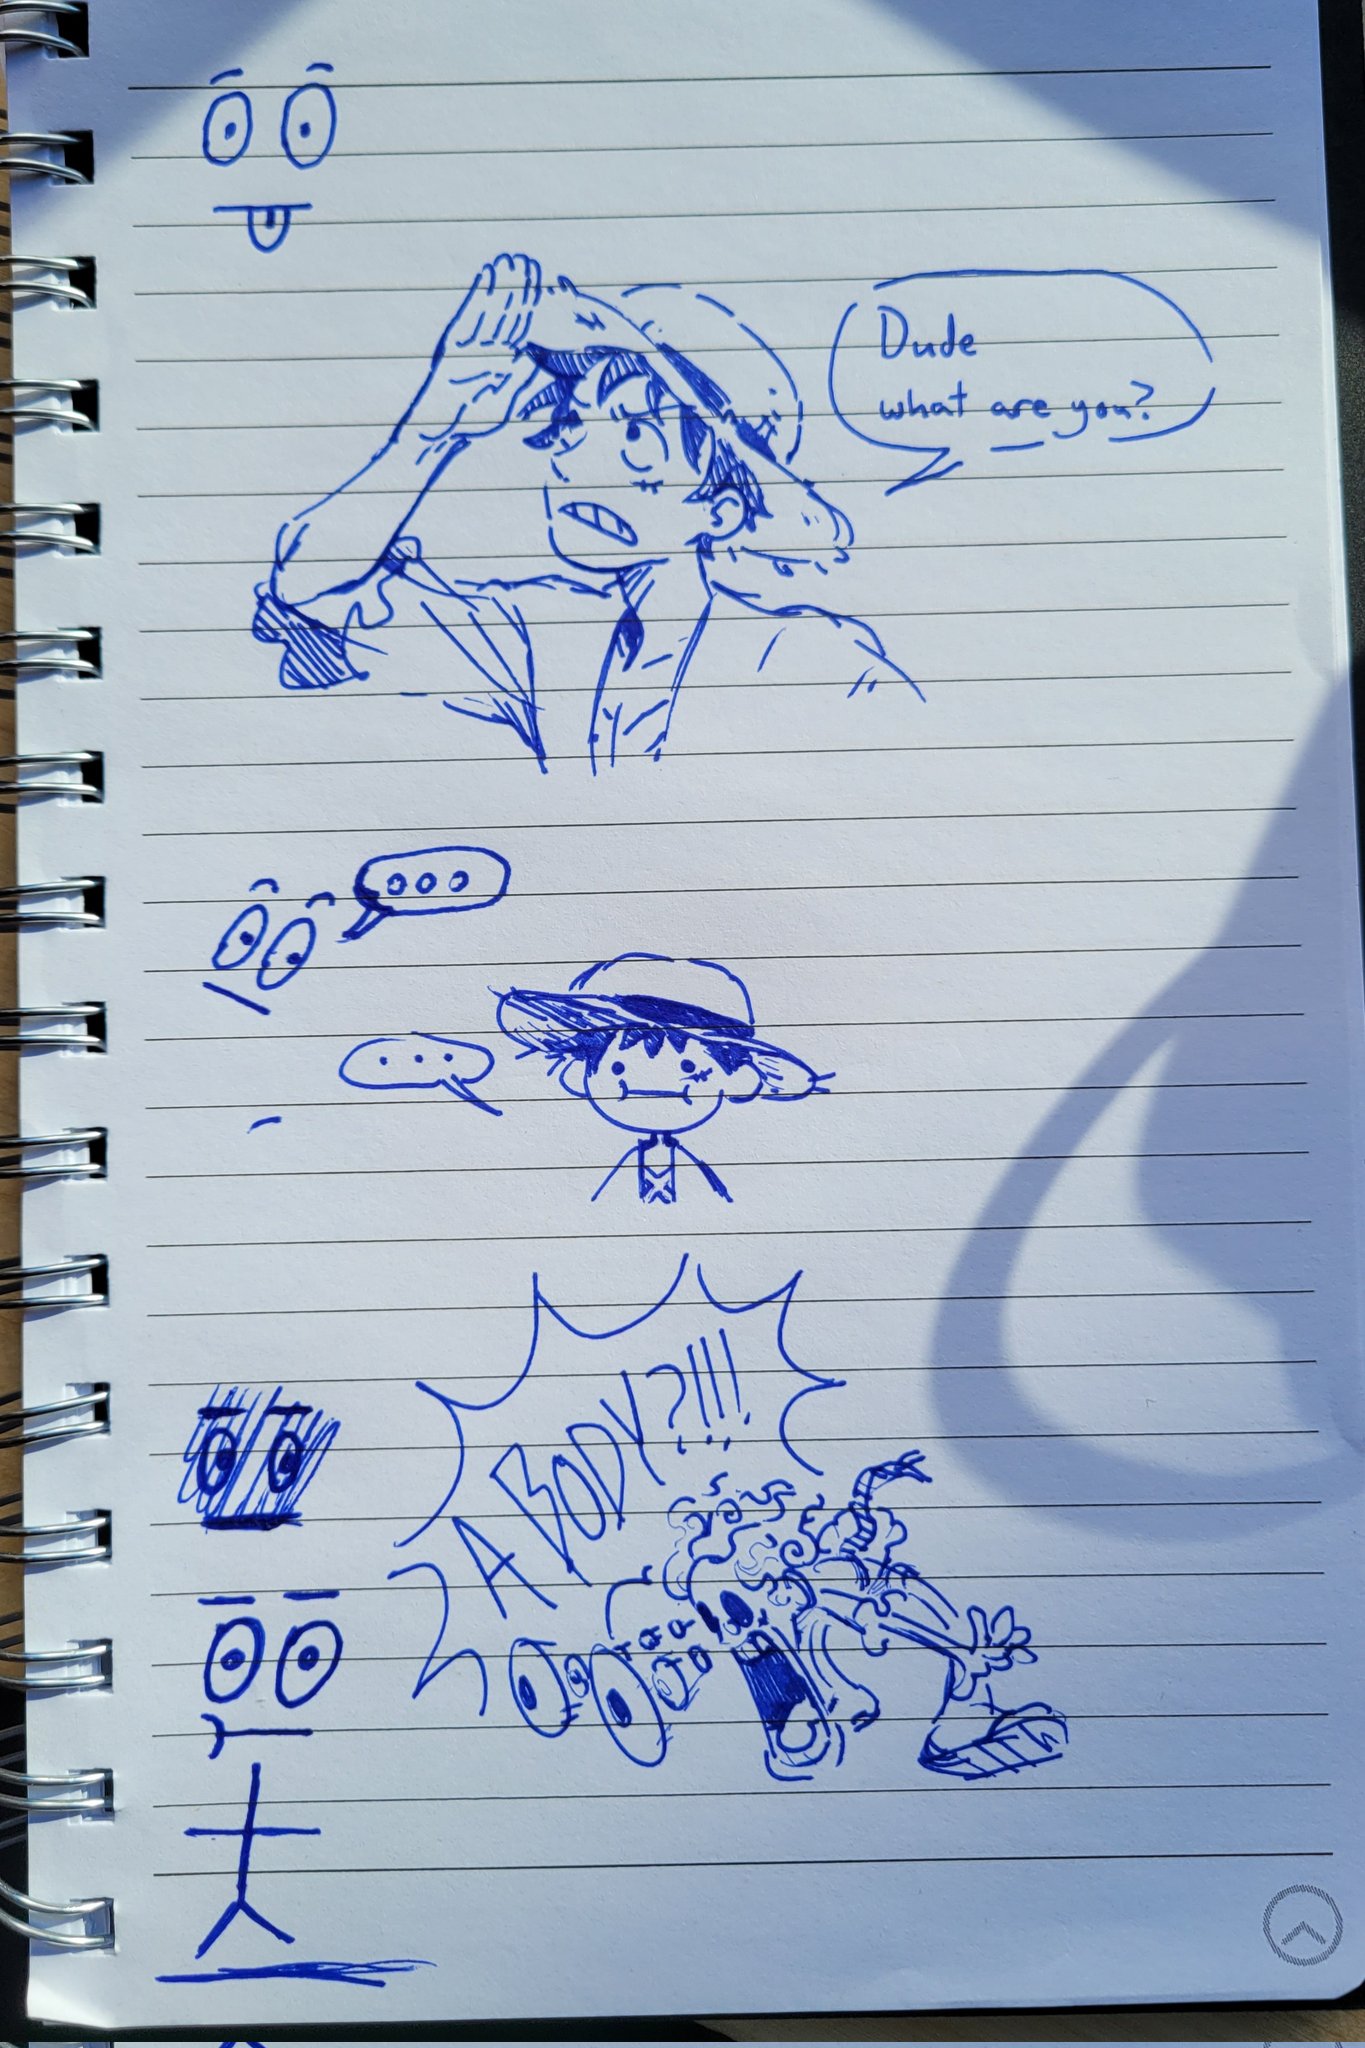 Dude
what are you?
...
...
A BODY?!!!